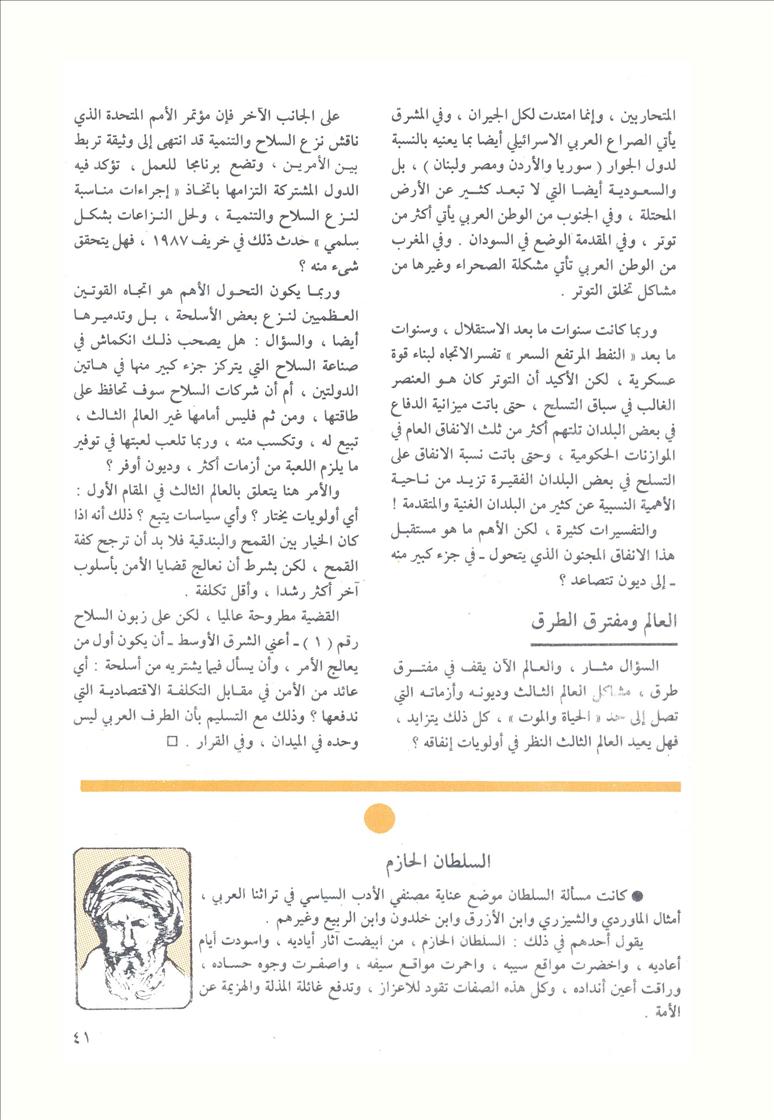 المتحاربين ، وإنما امتدت لكل الجيران ، وفي المشرق
يأتي الصراع العربي الاسرائيلي أيضا بما يعنيه بالنسبة
لدول الجوار ( سوريا والأردن ومصر ولبنان ) ، بل
والسعودية أيضا التي لا تبعد كثير عن الأرض
المحتلة ، وفي الجنوب من الوطن العربي يأتي أكثر من
توتر ، وفي المقدمة الوضع في السودان . وفي المغرب
من الوطن العربي تأتي مشكلة الصحراء وغيرها من
مشاكل تخلق التوتر .
وربما كانت سنوات ما بعد الاستقلال ، وسنوات
ما بعد « النفط المرتفع السعر » تفسر الاتجاه لبناء قوة
عسكرية ، لكن الأكيد أن التوتر كان هو العنصر
الغالب في سباق التسلح ، حتى باتت ميزانية الدفاع
في بعض البلدان تلتهم أكثر من ثلث الانفاق العام في
الموازنات الحكومية ، وحتى باتت نسبة الانفاق على
التسلح في بعض البلدان الفقيرة تزيد من ناحية
الأهمية النسبية عن كثير من البلدان الغنية والمتقدمة !
والتفسيرات كثيرة ، لكن الأهم ما هو مستقبل
هذا الانفاق المجنون الذي يتحول ـ في جزء كبير منه
ـ إلى ديون تتصاعد ؟
العالم ومفترق الطرق
السؤال مثار ، والعالم الآن يقف في مفترق
طرق ، مشاكل العالم الثالث وديونه وأزماته التي
تصل إلى حد « الحياة والموت » ، كل ذلك يتزايد ،
فهل يعيد العالم الثالث النظر في أولويات إنفاقه ؟
على الجانب الآخر فإن مؤتمر الأمم المتحدة الذي
ناقش نزع السلاح والتنمية قد انتهى إلى وثيقة تربط
بين الأمرين ، وتضع برنامجا للعمل ، تؤكد فيه
الدول المشتركة التزامها باتخاذ « إجراءات مناسبة
لنزع السلاح والتنمية ، ولحل النزاعات بشكل
سلمي » حدث ذلك في خريف ١٩٨٧ ، فهل يتحقق
شيء منه ؟
وربما يكون التحول الأهم هو اتجاه القوتين
العظميين لنزع بعض الأسلحة ، بل وتدميرها
أيضا ، والسؤال : هل يصحب ذلك انكماش في
صناعة السلاح التي يتركز جزء كبير منها في هاتين
الدولتين ، أم أن شركات السلاح سوف تحافظ على
طاقتها ، ومن ثم فليس أمامها غير العالم الثالث ،
تبيع له ، وتكسب منه ، وربما تلعب لعبتها في توفير
ما يلزم اللعبة من أزمات أكثر ، وديون أوفر ؟
والأمر هنا يتعلق بالعالم الثالث في المقام الأول :
أي أولويات يختار ؟ وأي سياسات يتبع ؟ ذلك أنه اذا
كان الخيار بين القمح والبندقية فلا بد أن ترجح كفة
القمح ، لكن بشرط أن نعالج قضايا الأمن بأسلوب
آخر أكثر رشدا ، وأقل تكلفة .
القضية مطروحة عالميا ، لكن على زبون السلاح
رقم ( ١ ) ـ أعني الشرق الأوسط ـ أن يكون أول من
يعالج الأمر ، وأن يسأل فيما يشتريه من أسلحة : أي
عائد من الأمن في مقابل التكلفة الاقتصادية التي
ندفعها ؟ وذلك مع التسليم بأن الطرف العربي ليس
وحده في الميدان ، وفي القرار . □
السلطان الحازم
● كانت مسألة السلطان موضع عناية مصنفي الأدب السياسي في تراثنا العربي ،
أمثال الماوردي والشيزري وابن الأزرق وابن خلدون وابن الربيع وغيرهم .
يقول أحدهم في ذلك : السلطان الحازم ، من ابيضت آثار أياديه ، واسودت أيام
أعاديه ، واخضرت مواقع سيبه ، واحمرت مواقع سيفه ، واصفرت وجوه حساده ،
وراقت أعين أنداده ، وكل هذه الصفات تقود للاعزاز ، وتدفع غائلة المذلة والهزيمة عن
الأمة .
٤١